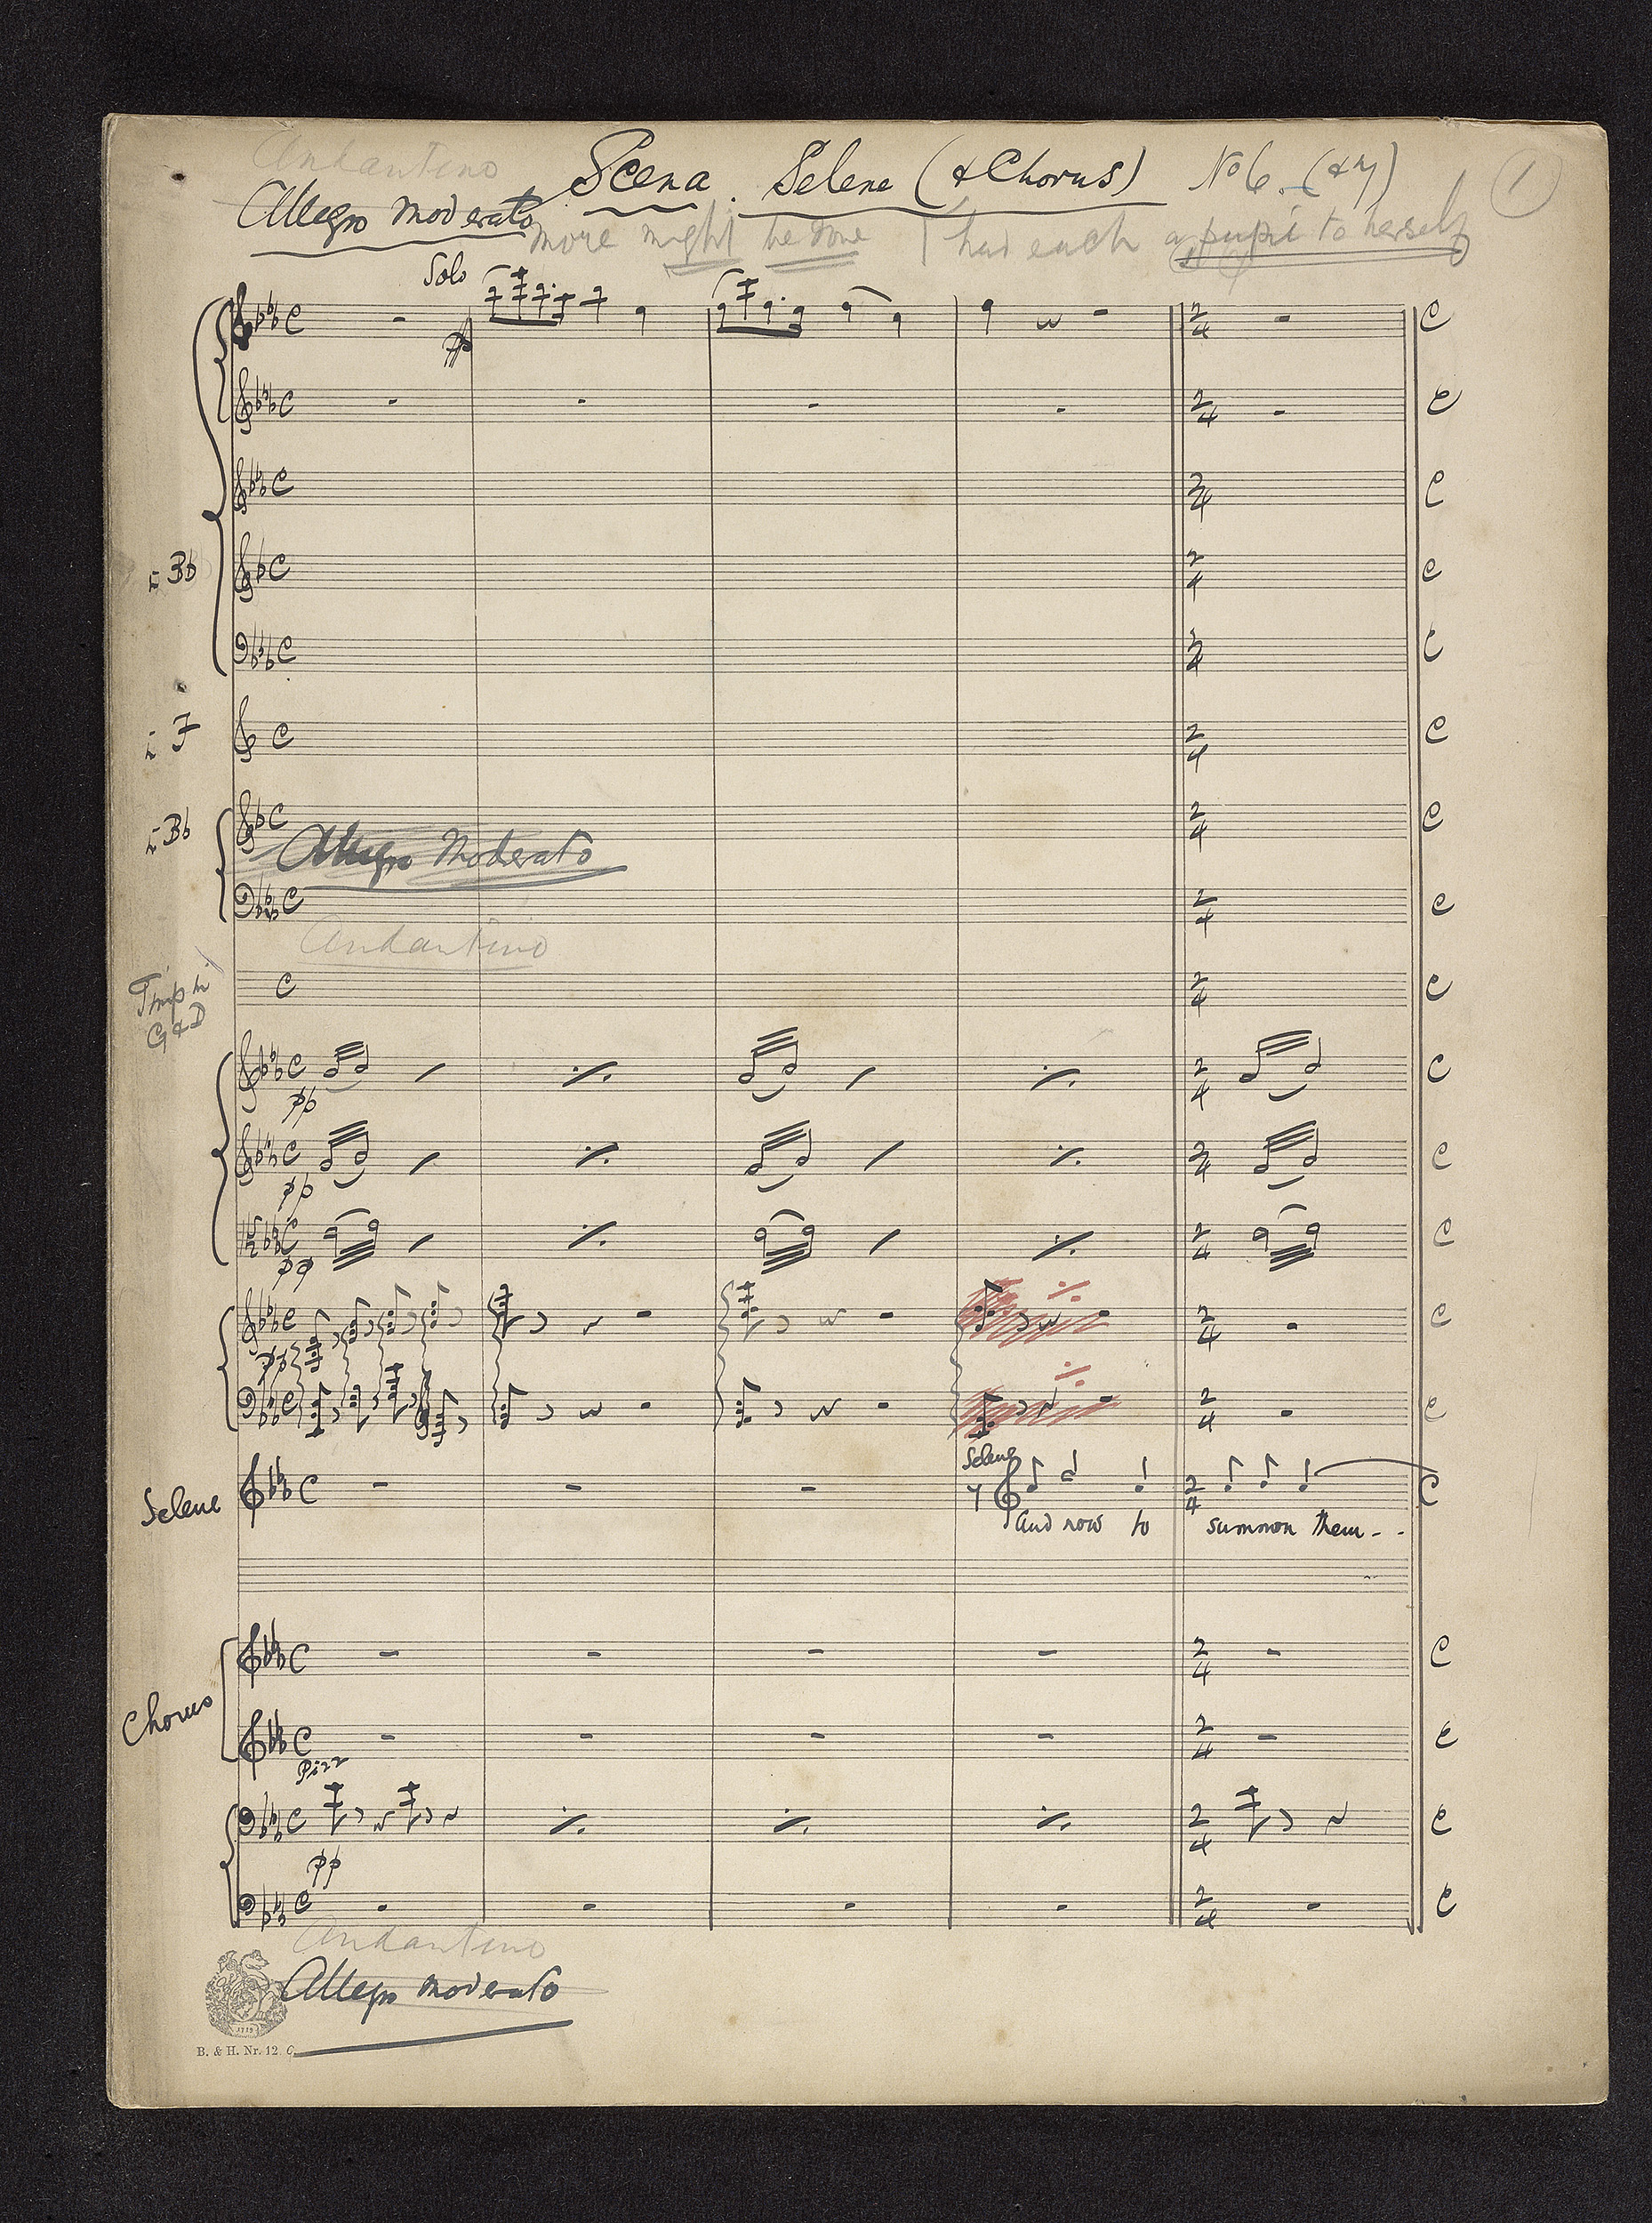 Andantino
Scena. Selene (& Chorus) No 6. (& 7) 1
Allegro Moderato
more might be done had each a pupil to herself
Solo
pp
in Bb
in F
in Bb
Allegro Moderato
Andantino
Timp in
G & D
pp
pp
pp
pp
Selene
Selene
and now to summon them - -
Chorus
Pizz
pp
Andantino
Allegro moderato
1719
B. & H. Nr. 12. C.